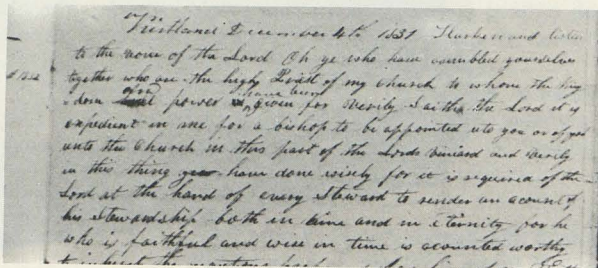 Kirtland December 4th 1831 Hearken and listen
to the voice of the Lord Oh ye who have assembled yourselves
together who are the high Priests of my church to whom the King
dom and power have been given for verily saith the Lord it is
expedient in me for a bishop to be appointed unto you or of you
unto the Church in this part of the Lords viniard and verily
in this thing ye have done wisely for it is required of the
Lord at the hand of every Steward to render an acount of
his Stewardship both in time and in eternity for he
who is faithful and wise in time is acounted worthy
to inherit the mantions